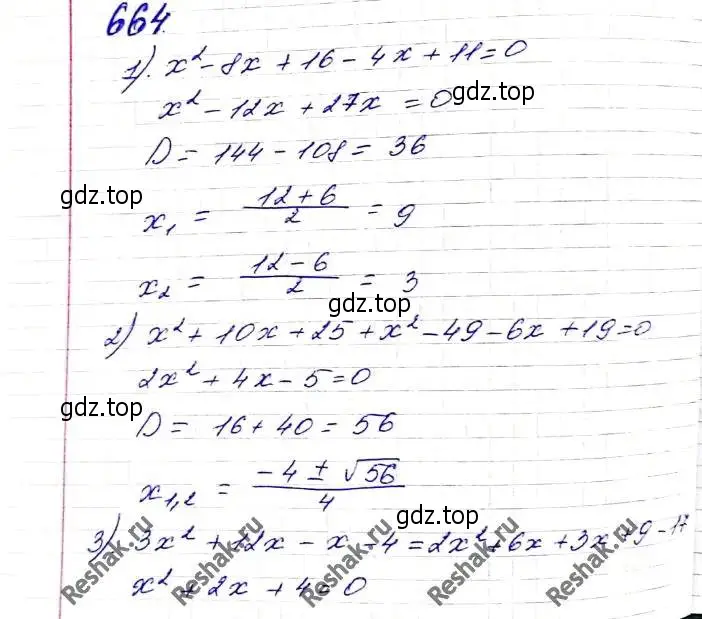 664.
1). x² - 8x + 16 - 4x + 11 = 0
x² - 12x + 27x = 0
gdz.top
D = 144 - 108 = 36
gdz.top
x₁ = (12 + 6)/2 = 9
x₂ = (12 - 6)/2 = 3
gdz.top
2) x² + 10x + 25 + x² - 49 - 6x + 19 = 0
2x² + 4x - 5 = 0
gdz.top
D = 16 + 40 = 56
x₁,₂ = (-4 ± √56)/4
gdz.top
3) 3x² + 12x - x - 4 = 2x² + 6x + 3x + 9 - 17
x² + 2x + 4 = 0
Reshak.ru Reshak.ru Reshak.ru Reshak.ru Reshak.ru